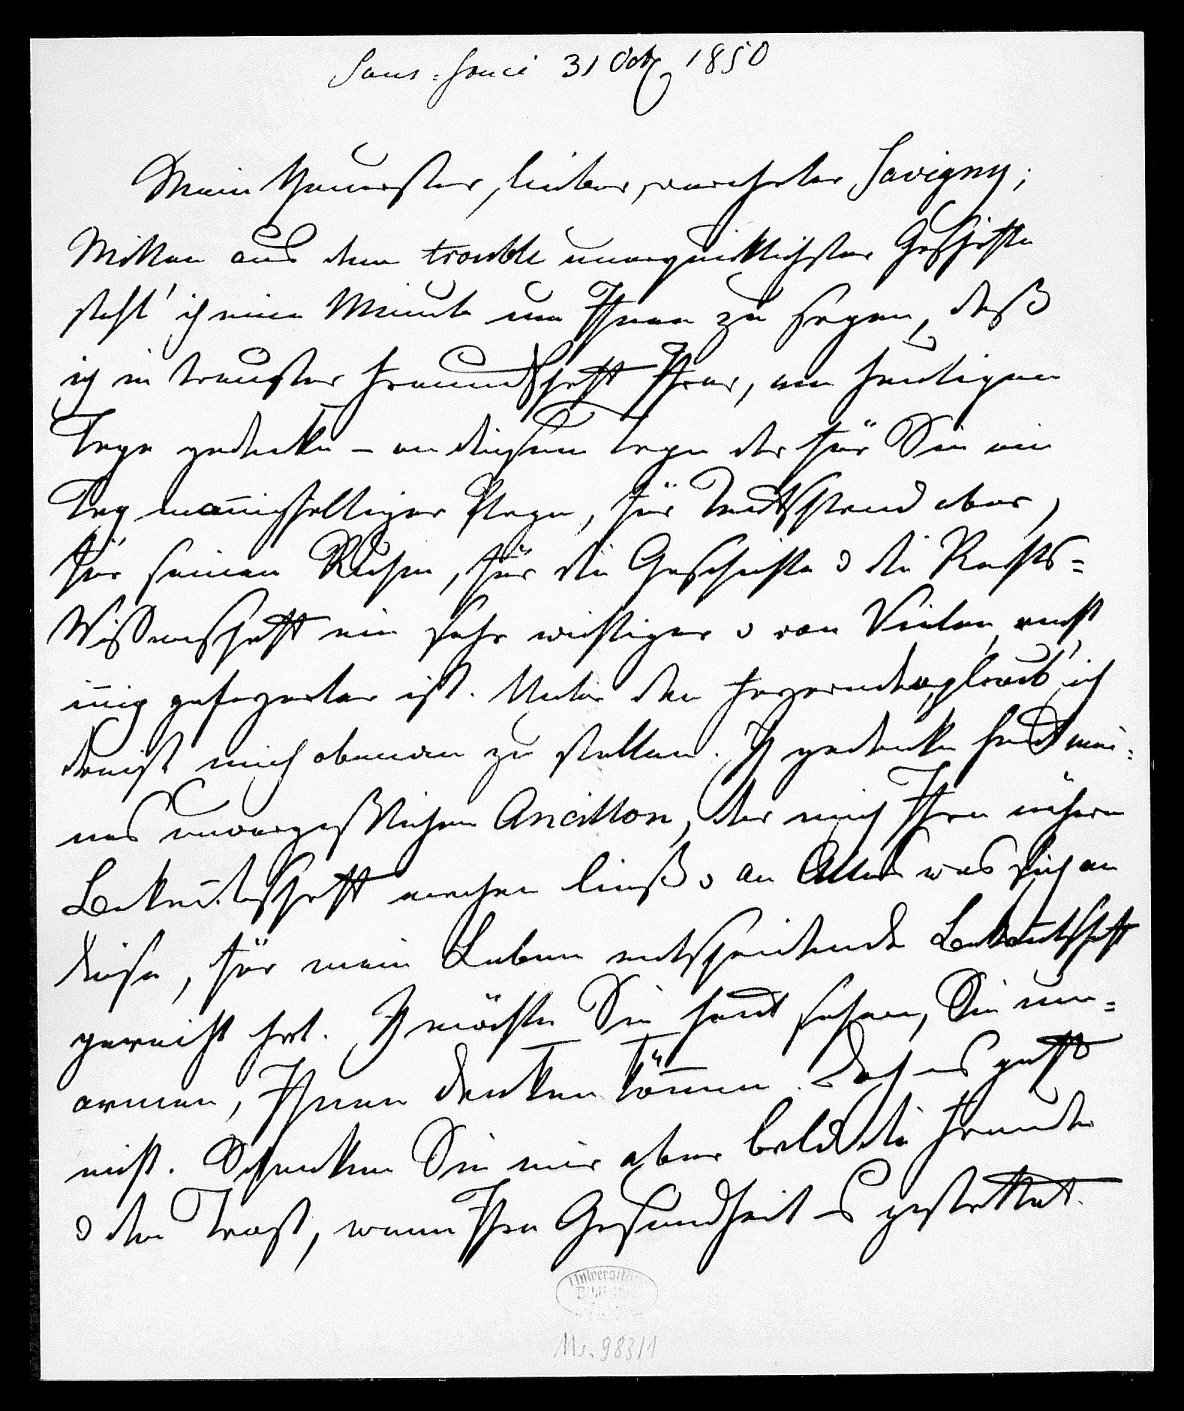 Sans-Souci 31 Octb 1850
Mein theuerster, lieber, verehrter Savigny;
Mitten aus dem trouble unerquicklichster Geschäfte
stehl' ich eine Minute um Ihnen zu sagen, daß
ich in treuster Freundschaft Ihrer, am heutigen
Tage gedenke – an diesem Tage der für Sie ein
Tag mannichfaltiger Segen, für Teutschland aber,
für seinen Ruhm, für die Geschichte u die Rechts=
Wissenschaft ein sehr wichtiger u von Vielen recht
innig gefeyerter ist. Unter den Feyernden, glaub' ich
dreist mich obenan zu stellen. Ich gedenke heut mei=
nes unvergeßlichen Ancillon, der mich Ihre nähere
Bekanntschaft machen ließ u an Alles was sich an
diese, für mein Leben entscheidende Bekanntschaft
gereiht hat. Ich möchte Sie heut sehen, Sie um=
armen, Ihnen danken können. Doch es geht
nicht. Schenken Sie mir aber bald die Freude
u den Trost, wenn Ihre Gesundheit es gestattet.
Universitäts
Ms. 983/1